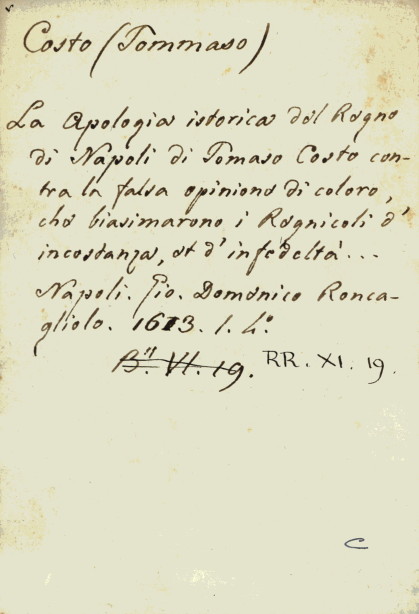 Costo (Tommaso)
La Apologia istorica del Regno
di Napoli di Tomaso Costo con-
tra la falsa opinione di coloro,
che biasimarono i Regnicoli d'
incostanza, et d'infedeltà...
Napoli. Gio. Domenico Ronca-
gliolo. 1613. 1. 4.º
B." VI. 19. RR. XI. 19.
C